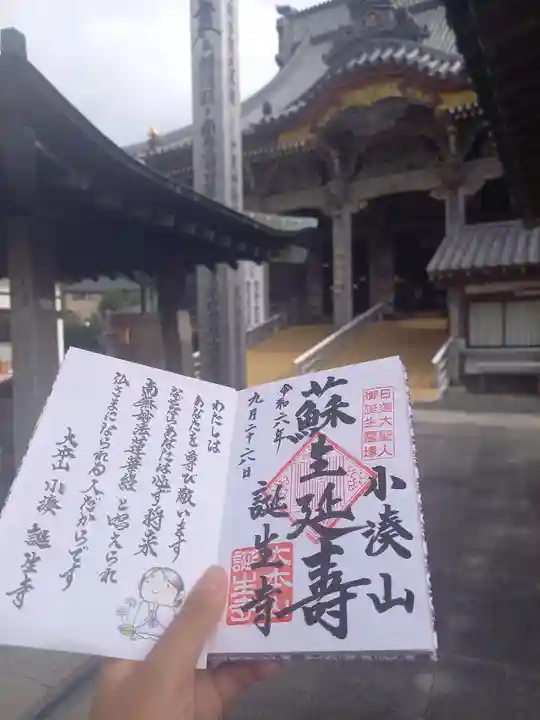 日蓮大聖人
御誕生霊場
小湊山
蘇生延寿
誕生寺
令和六年
九月二十六日
大本山
誕生寺
わたしは
あなたを尊び敬います
なぜならあなたは必ず将来
南無妙法蓮華経と唱えられ
仏さまになられる人だからです
大本山小湊誕生寺